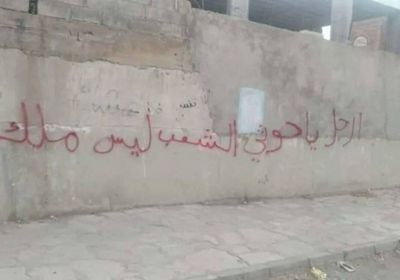 ارحل يا حوثي الشعب ليس ملك